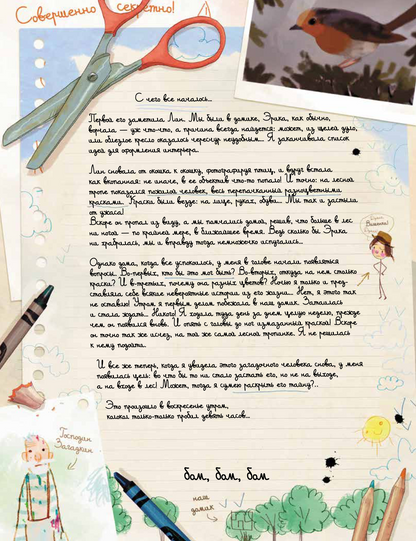 Совершенно секретно!
С чего все началось...
Первой его заметила Лин. Мы были в домике, Эрика, как обычно,
ворчала — уж что-что, а причина всегда найдется: может, из щелей дуло,
или облезлое кресло оказалось чересчур неудобным... Я заканчивала список
идей для оформления интерьера.
Лин сновала от окошка к окошку, фотографируя птиц, и вдруг встала
как вкопанная: не иначе, в ее объектив что-то попало! И точно: на лесной
тропе показался пожилой человек, весь перепачканный разноцветными
красками. Краски были везде: на лице, руках, обуви... Мы так и застыли
от ужаса!
Вскоре он пропал из виду, а мы помчались домой, решив, что больше в лес
ни ногой — по крайней мере, в ближайшее время. Ведь сколько бы Эрика
ни храбрилась, мы и вправду тогда немножечко испугались...
Однако дома, когда все успокоилось, у меня в голове начали появляться
вопросы. Во-первых, кто бы это мог быть? Во-вторых, откуда на нем столько
краски? И в-третьих, почему она разных цветов? Ночью я только и пред-
ставляла себе всякие невероятные истории из его жизни... Нет, я этого так
не оставлю! Утром я первым делом побежала в наш домик. Затаилась
и стала ждать... Никого! Я ходила туда день за днем целую неделю, прежде
чем он появился вновь. И опять с головы до ног измазанный краской! Вскоре
он точно так же исчез, на той же самой лесной тропинке. Я не решилась
к нему подойти.
И все же теперь, когда я увидела этого загадочного человека снова, у меня
появилась цель: во что бы то ни стало застать его, но не на выходе,
а на входе в лес! Может, тогда я сумею раскрыть его тайну?..
Это произошло в воскресенье утром,
колокол только-только пробил девять часов...
бом, бом, бом
Господин
Загадкин
наш
домик